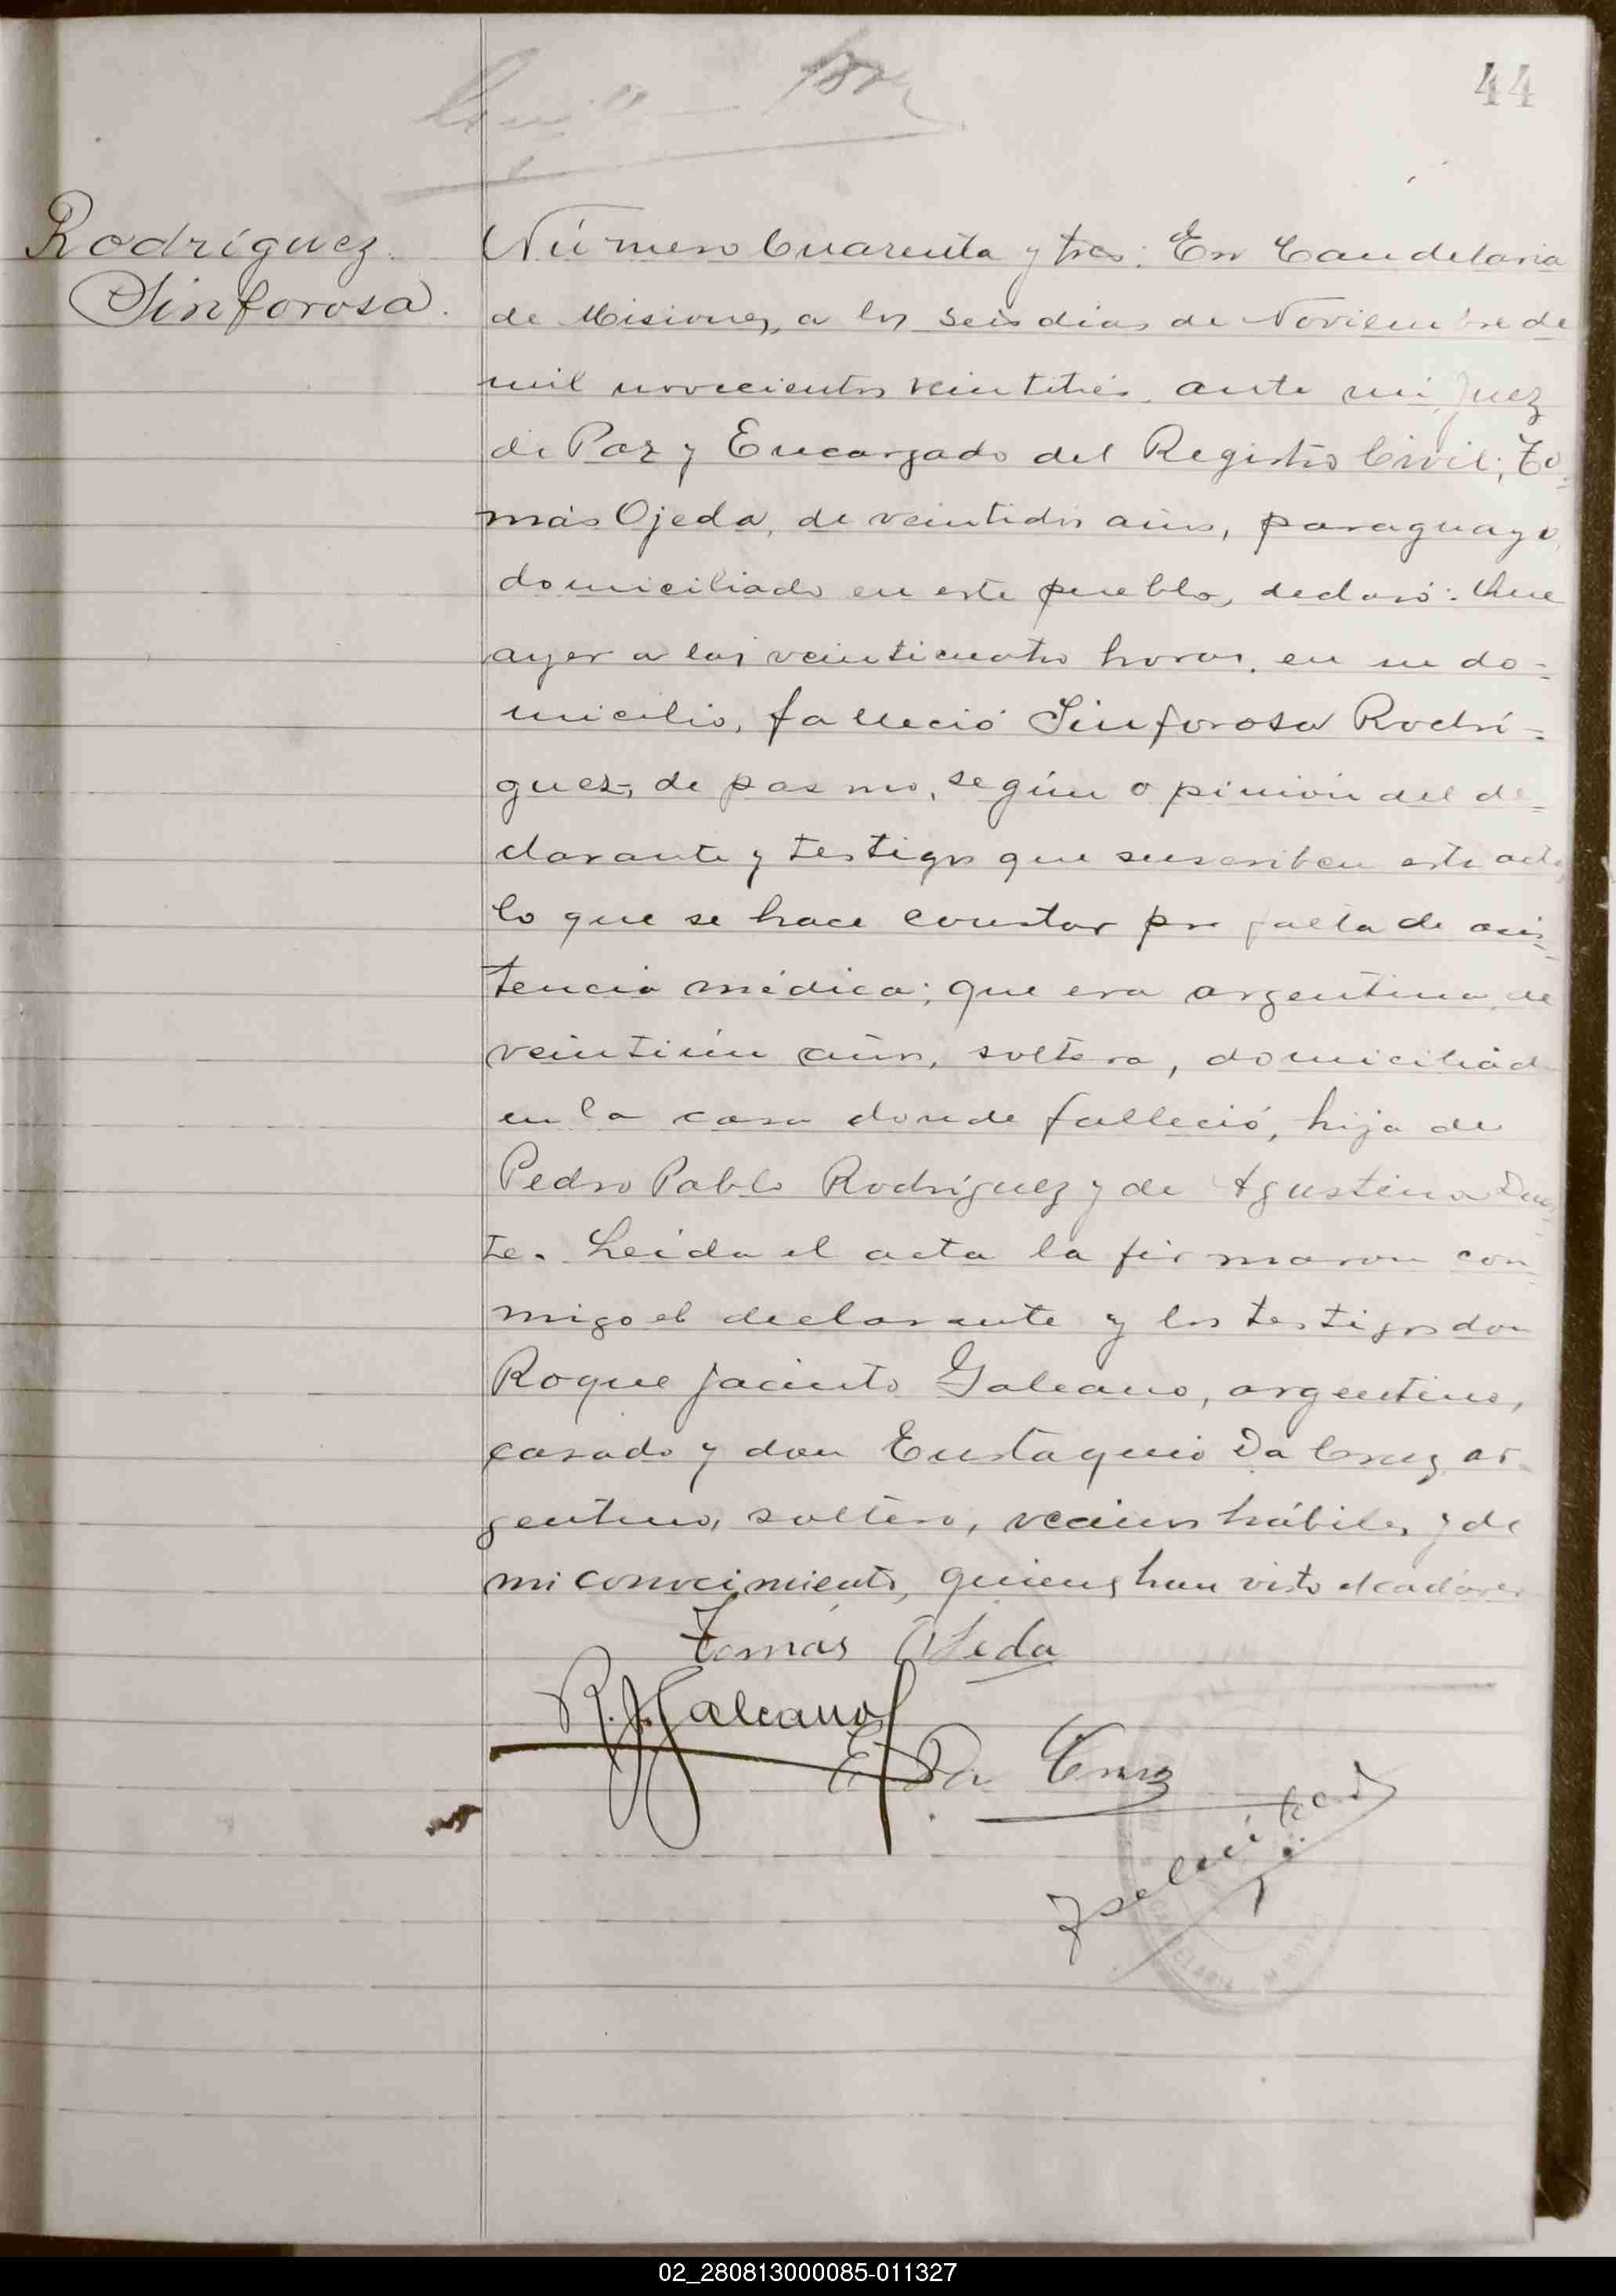 44
Rodríguez
Sinforosa.
Número Cuarenta y tres: En Candelaria
de Misiones, a los seis dias de Noviembre de
mil novecientos veintitrés, ante mi, Juez
de Paz y Encargado del Registro Civil; To=
más Ojeda, de veintidos años, paraguayo,
domiciliado en este pueblo, declaró: Que
ayer a las veinticuatro horas, en su do=
micilio, falleció Sinforosa Rodrí=
guez, de pasmo, según opinión del de=
clarante y testigos que suscriben este acta,
lo que se hace constar por falta de asis=
tencia médica; que era argentina, de
veintiún años, soltera, domiciliada
en la casa donde falleció, hija de
Pedro Pablo Rodríguez y de Agustina Duar=
te. Leida el acta la firmaron con=
migo el declarante y los testigos don
Roque Jacinto Galeano, argentino,
casado y don Eustaquio Da Cruz, ar=
gentino, soltero, vecinos hábiles y de
mi conocimiento, quienes han visto el cadáver
Tomás Ojeda
R. J. Galeano
E. Da Cruz
02_280813000085-011327